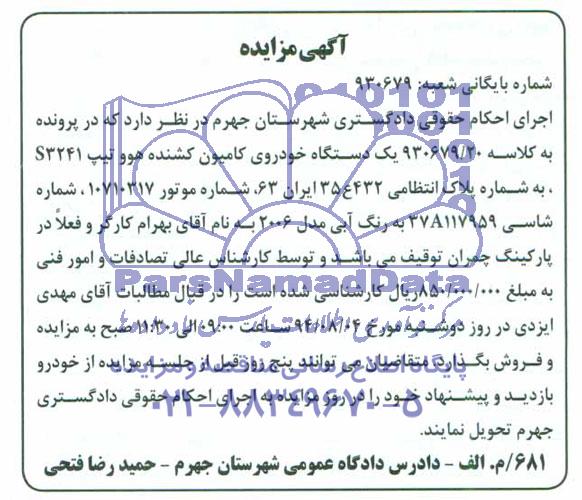 آگهی مزایده
شماره بایگانی شعبه: ۹۳۰۶۷۹
اجرای احکام حقوقی دادگستری شهرستان جهرم در نظر دارد که در پرونده
به کلاسه ۹۳۰۶۷۹/۲۰ یک دستگاه خودروی کامیون کشنده هوو تیپ S۳۲۴۱
، به شماره پلاک انتظامی ۴۳۲ع۳۵ ایران ۶۳، شماره موتور ۱۰۷۱۰۳۱۷، شماره
شاسی ۳۷A۱۱۷۹۵۹ به رنگ آبی مدل ۲۰۰۶ به نام آقای بهرام کارگر و فعلاً در
پارکینگ چمران توقیف می باشد و توسط کارشناس عالی تصادفات و امور فنی
به مبلغ ۸۵۰/۰۰۰/۰۰۰ریال کارشناسی شده است را در قبال مطالبات آقای مهدی
ایزدی در روز دوشنبه مورخ ۹۴/۰۸/۰۴ ساعت ۰۹:۰۰ الی ۱۱:۳۰ صبح به مزایده
و فروش بگذارد. متقاضیان می توانند پنج روز قبل از جلسه مزایده از خودرو
بازدید و پیشنهاد خود را در روز مزایده به اجرای احکام حقوقی دادگستری
جهرم تحویل نمایند.
۶۸۱/م. الف - دادرس دادگاه عمومی شهرستان جهرم - حمید رضا فتحی
ParsNamadData
پایگاه اطلاع رسانی مناقصه و مزایده
۰۲۱-۸۸۳۴۹۶۷۰-۵